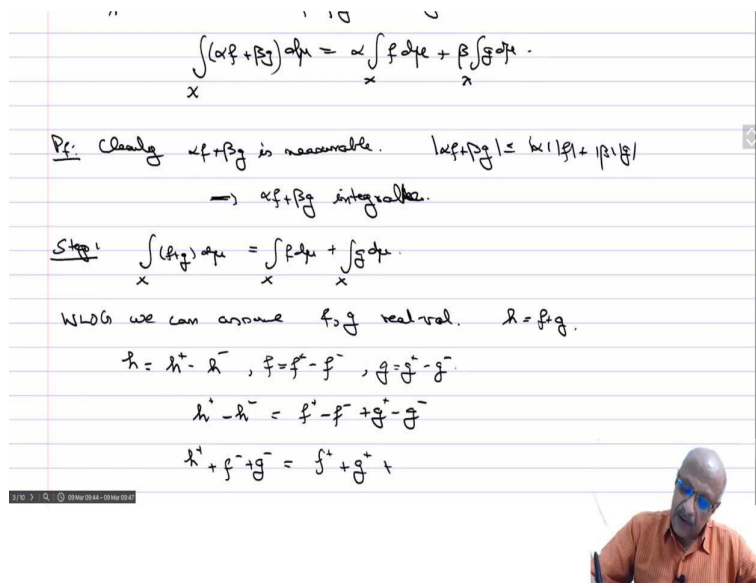 ∫_X (αf + βg) dμ = α ∫_X f dμ + β ∫_X g dμ.
Pf: Clearly αf + βg is measurable. |αf + βg| ≤ |α| |f| + |β| |g|
⇒ αf + βg integrable.
Step 1 ∫_X (f+g) dμ = ∫_X f dμ + ∫_X g dμ.
WLOG we can assume f, g real-val. h = f+g.
h = h⁺ - h⁻, f = f⁺ - f⁻, g = g⁺ - g⁻.
h⁺ - h⁻ = f⁺ - f⁻ + g⁺ - g⁻
h⁺ + f⁻ + g⁻ = f⁺ + g⁺ +
3/10 09 Mar 09:44 - 09 Mar 09:47